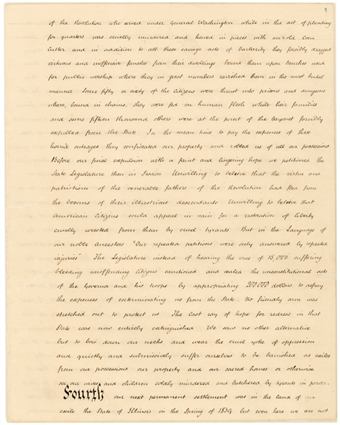 of the Revolution who served under General Washington while in the act of pleading
for quarters was cruelly murdered and hewed in pieces with an old corn
cutter and in addition to all these savage acts of barbarity they forcibly dragged
virtuous and inoffensive females from their dwellings bound them upon benches used
for public worship where they in great numbers ravished them in the most brutal
manner Some fifty or sixty of the citizens were thrust into prisons and dungeons
where, bound in chains, they were fed on human flesh while their families
and some fifteen thousand others were at the point of the bayonet forcibly
expelled from the State. In the mean time to pay the expenses of these
horrid outrages they confiscated our property and robbed us of all our possessions
Before our final expulsion with a faint and lingering hope we petitioned the
State Legislature then in Session Unwilling to believe that the virtue and
patriotism of the venerable fathers of the Revolution had fled from
the bosoms of their illustrious descendants Unwilling to believe that
American citizens could appeal in vain for a restoration of liberty
cruelly wrested from them by cruel tyrants But in the language of
our noble Ancestors "Our repeated petitions were only answered by repeated
injuries" The Legislature instead of hearing the cries of 15,000 suffering
bleeding unoffending citizens sanctioned and sealed the unconstitutional acts
of the Governor and his troops by appropriating 200,000 dollars to defray
the expenses of exterminating us from the State. No friendly arm was
stretched out to protect us The last ray of hope for redress in that
State was now entirely extinguished We saw no other alternative
but to bow down our necks and wear the cruel yoke of oppression
and quietly and submissively suffer ourselves to be banished as exiles
from our possessions our property and our sacred homes or otherwise
see our wives and children coldly murdered and butchered by tyrants in power.
Fourth our next permanent settlement was in the land of our
exile the State of Illinois in the Spring of 1839 but even here we are not